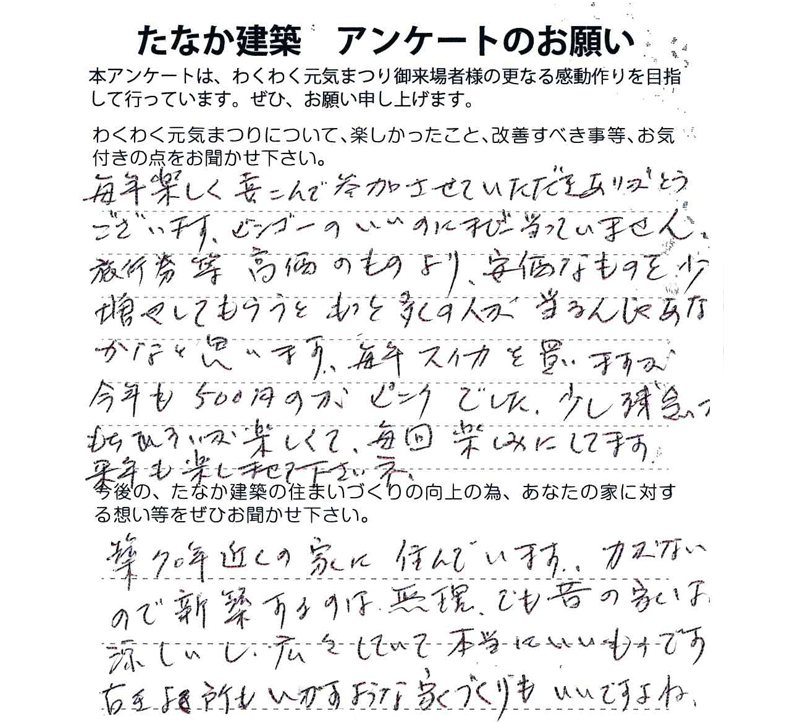 たなか建築　アンケートのお願い
本アンケートは、わくわく元気まつり御来場者様の更なる感動作りを目指
して行っています。ぜひ、お願い申し上げます。
わくわく元気まつりについて、楽しかったこと、改善すべき事等、お気
付きの点をお聞かせ下さい。
毎年楽しく喜こんで参加させていただきありがとう
ございます。ビンゴーのいいのにまだ当っていません。
旅行券等 高価のものより、安価なものを少
増やしてもらうと もっと多くの人が 当るんじゃあな
かなと思います。毎年スイカを買いますが
今年も500円のが ピンク でした。少し残念
もちひろいが楽しくて、毎回 楽しみにしてます。
来年も楽しませて下さいネ。
今後の、たなか建築の住まいづくりの向上の為、あなたの家に対す
る想い等をぜひお聞かせ下さい。
築70年近くの家に 住んでいます。カズない
ので新築するのは無理、でも昔の家は
涼しいし、広々していて本当にいいものです
古き よき所も いかすような家づくりも いいですよね。